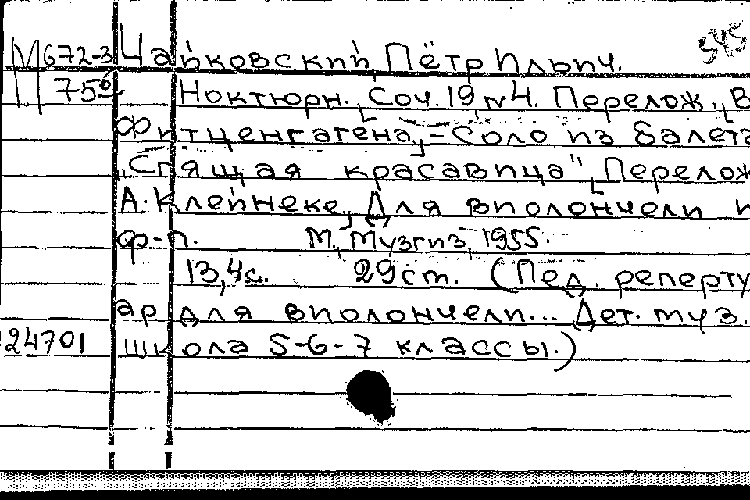 М672-3 Чайковский, Пётр Ильич. 545
750 Ноктюрн. Соч. 19, №4. Перелож. В
Фитценгагена, - Соло из балета
"Спящая красавица", Перелож
А. Клейнеке, Для виолончели и
ф-п. М, Музгиз, 1955.
13,4с. 29 ст. (Пед. реперту
ар для виолончели... Дет. муз.
24701 школа 5-6-7 классы.)